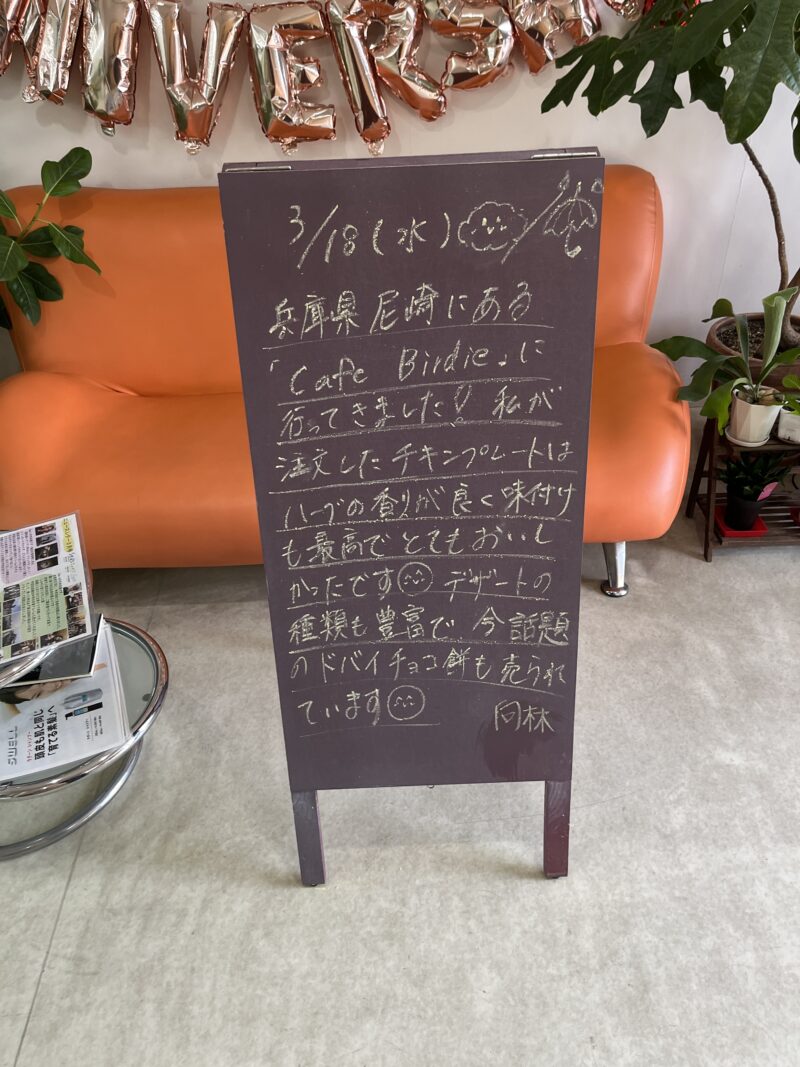 NIVERS
3/18(水) /
兵庫県 尼崎にある
「Cafe Birdie」に
行ってきました! 私が
注文したチキンプレートは
ハーブの香りが良く味付け
も最高でとてもおいし
かったです デザートの
種類も豊富で、今話題
のドバイチョコ餅も売られ
ています 向林
頭皮も肌と同じ
「育てる素髪」へ